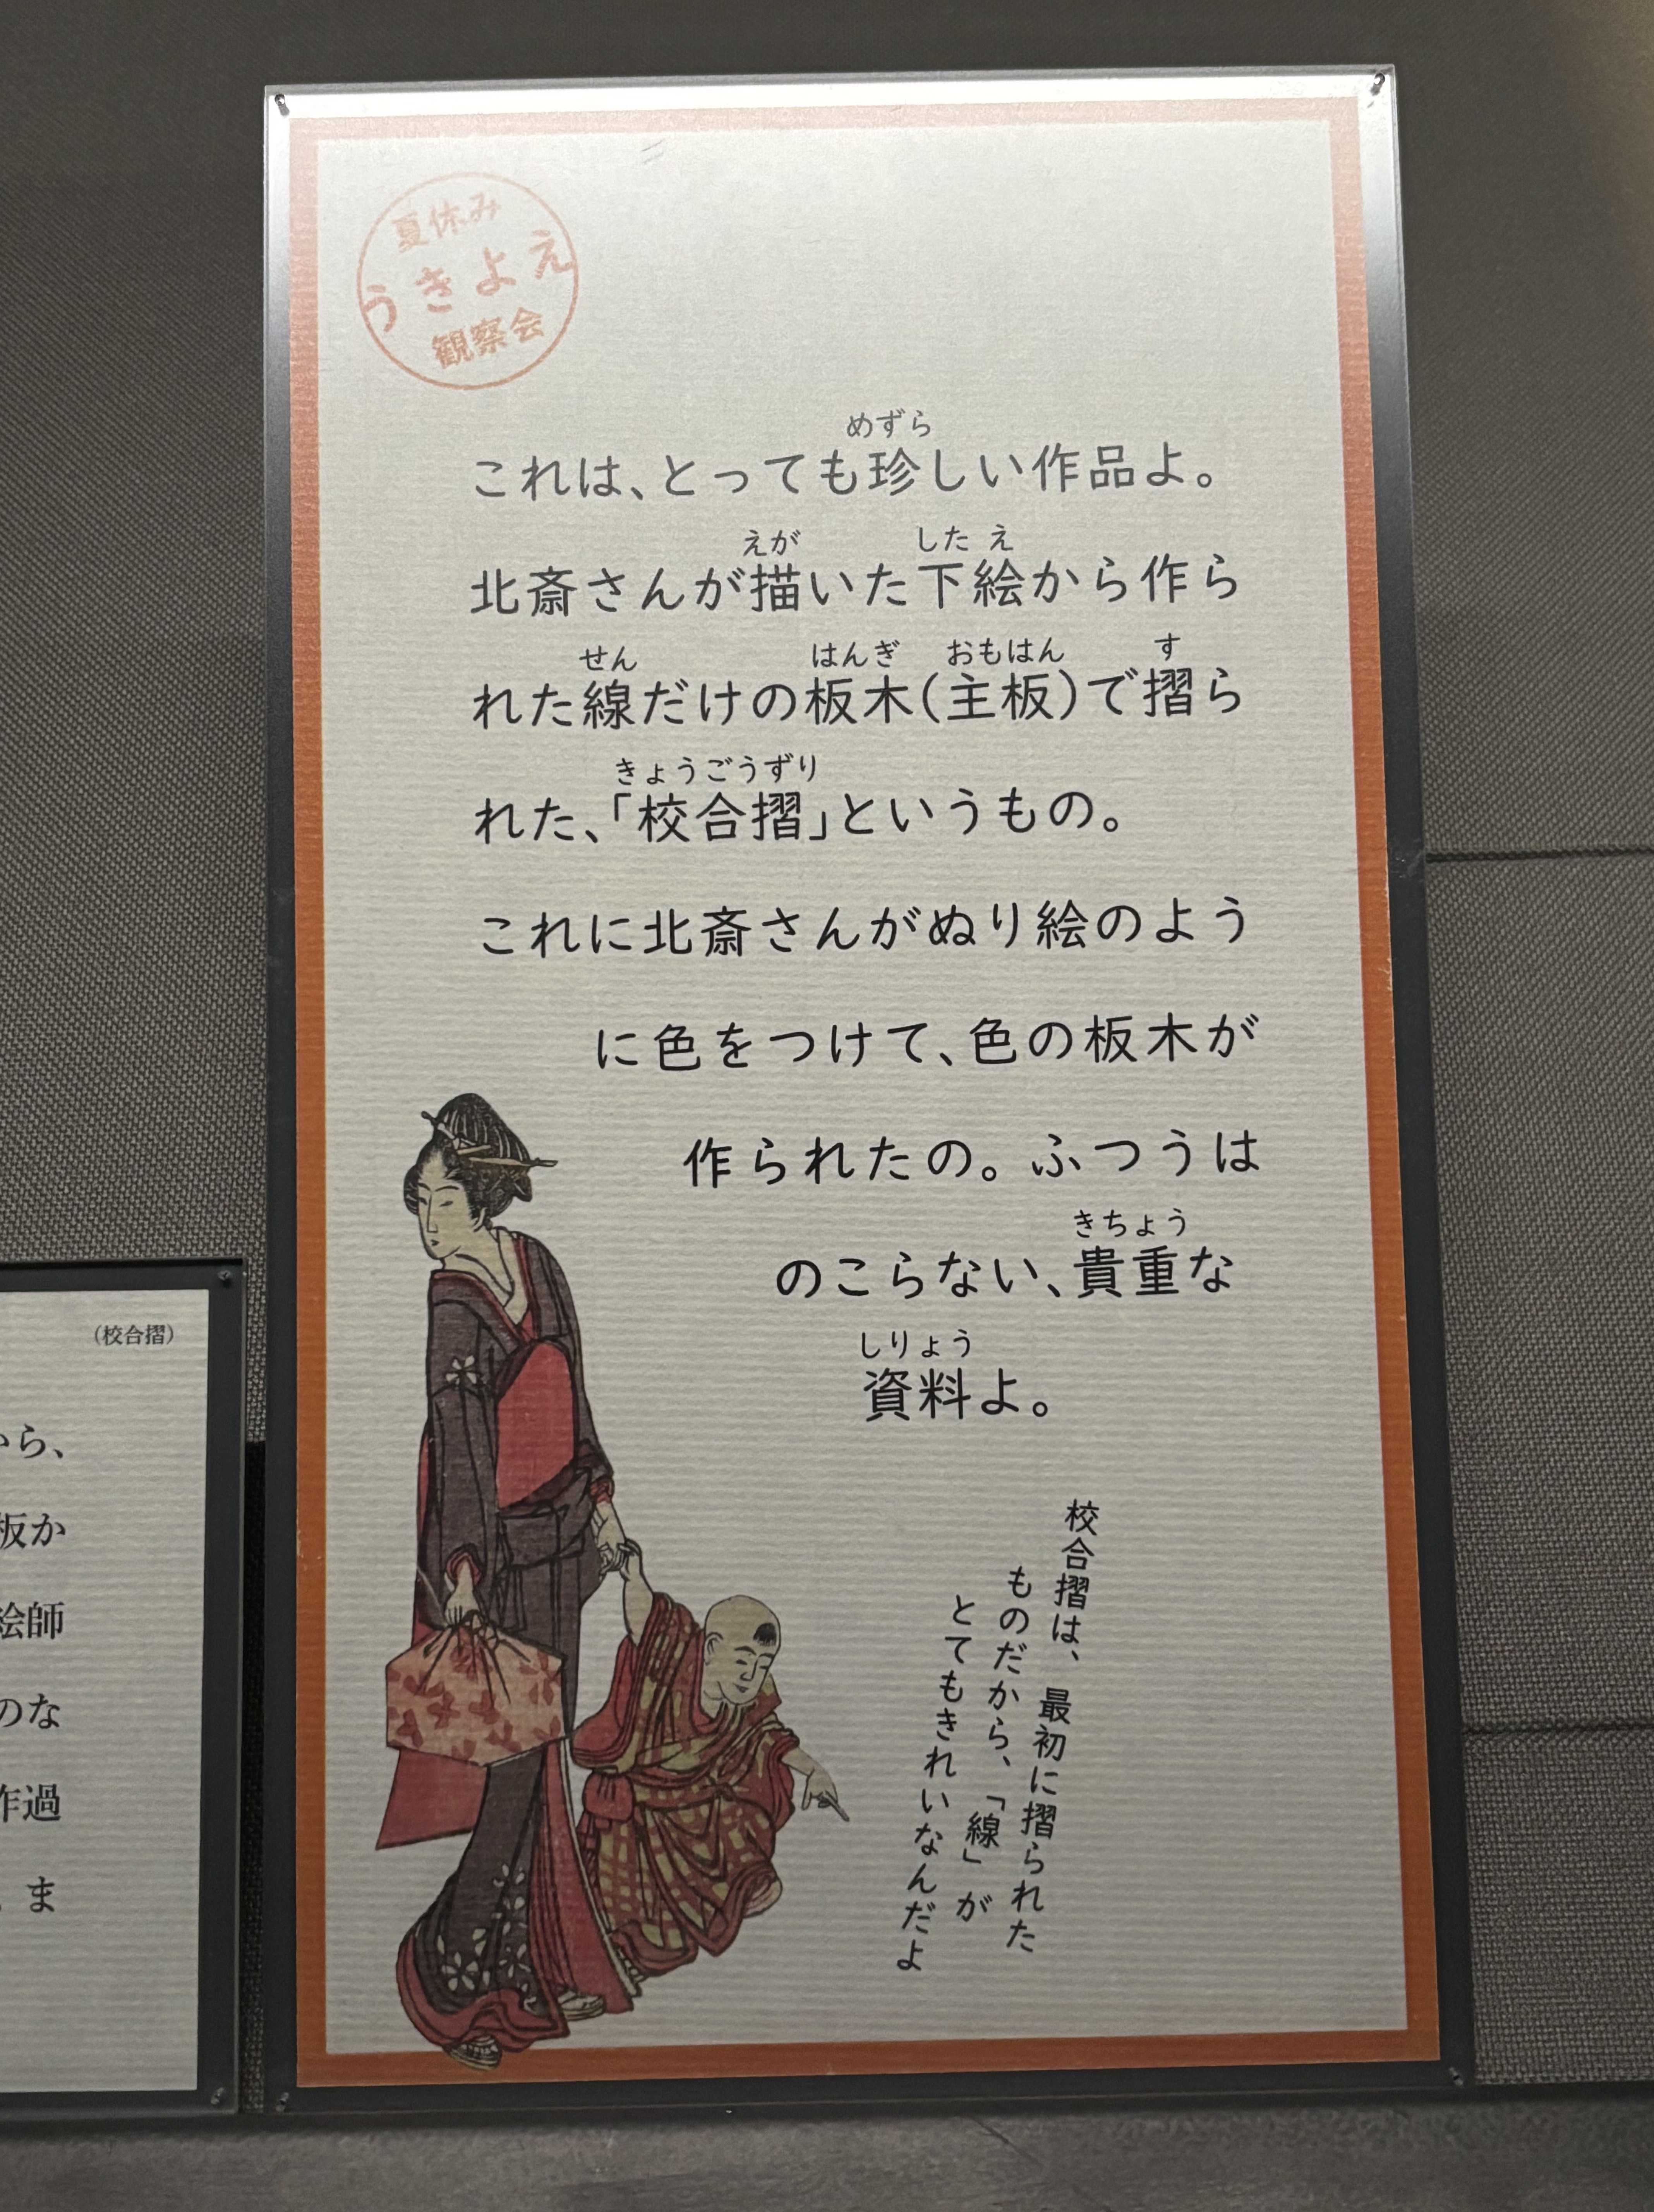 夏休み
うきよえ
観察会
めずら
これは、とっても珍しい作品よ。
えが したえ
北斎さんが描いた下絵から作ら
せん はんぎ おもはん す
れた線だけの板木(主板)で摺ら
きょうごうずり
れた、「校合摺」というもの。
これに北斎さんがぬり絵のよう
に色をつけて、色の板木が
作られたの。ふつうは
きちょう
のこらない、貴重な
しりょう
資料よ。
校合摺は、最初に摺られた
ものだから、「線」が
とてもきれいなんだよ
(校合摺)
から、
板か
絵師
のな
作過
ま